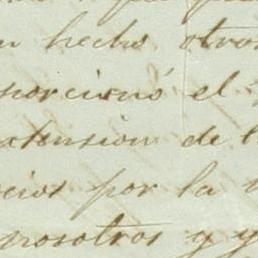 hecho otros
porcionó el
extension de l
cios por la
nosotros y y